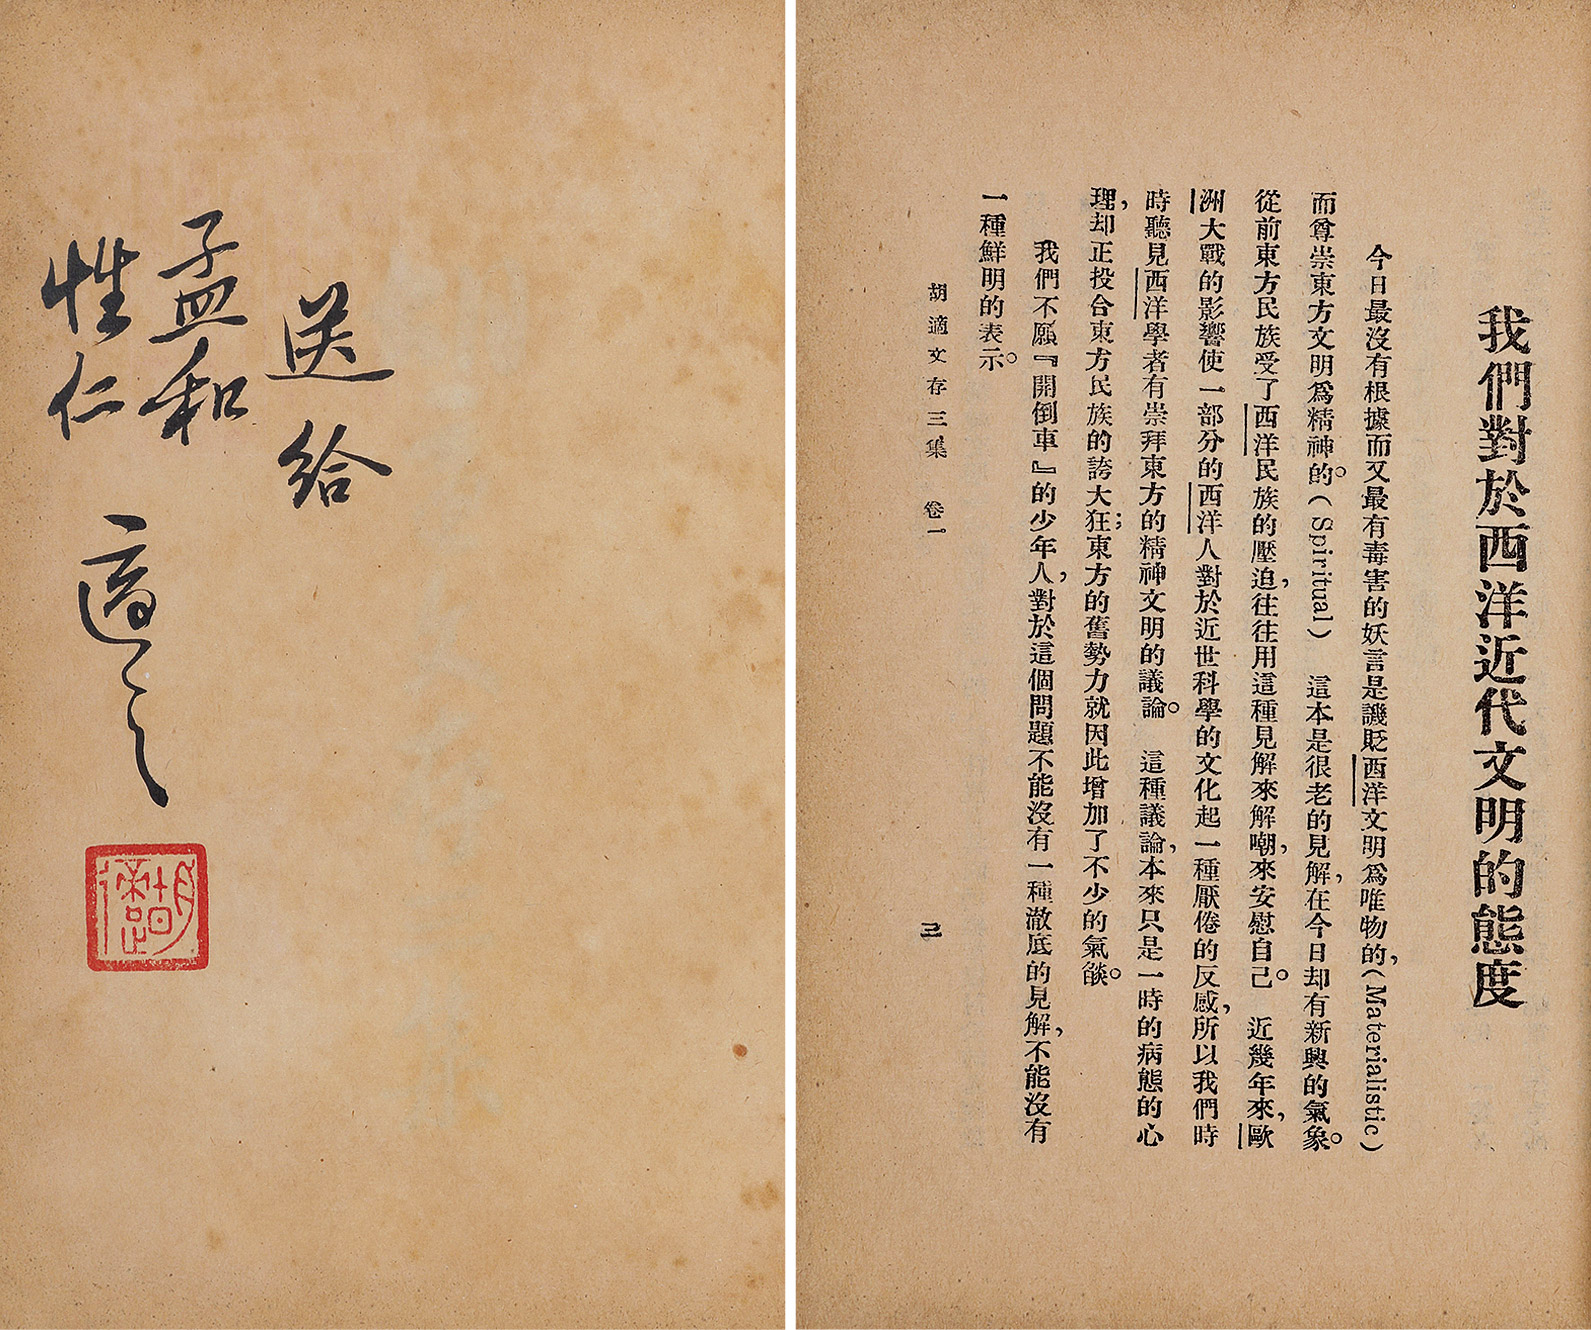 送給
孟和
性仁
適之
胡適
我們對於西洋近代文明的態度
今日最沒有根據而又最有毒害的妖言是譏貶西洋文明爲唯物的,(Materialistic)
而尊崇東方文明爲精神的。(Spiritual) 這本是很老的見解,在今日却有新興的氣象。
從前東方民族受了西洋民族的壓迫,往往用這種見解來解嘲,來安慰自己。 近幾年來,歐
洲大戰的影響使一部分的西洋人對於近世科學的文化起一種厭倦的反感,所以我們時
時聽見西洋學者有崇拜東方的精神文明的議論。 這種議論,本來只是一時的病態的心
理,却正投合東方民族的誇大狂;東方的舊勢力就因此增加了不少的氣燄。
我們不願『開倒車』的少年人,對於這個問題不能沒有一種澈底的見解,不能沒有
一種鮮明的表示。
胡適文存三集 卷一 三